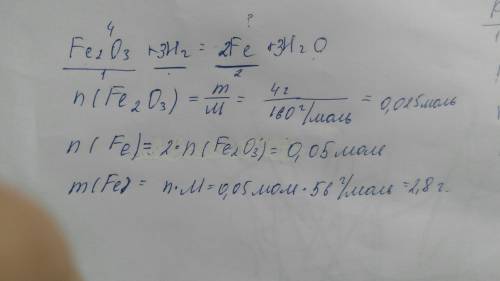 4 ?
Fe₂O₃ + 3H₂ = 2Fe + 3H₂O
1 2
n(Fe₂O₃) = m/M = 4г/160 г/моль = 0,025 моль
n(Fe) = 2·n(Fe₂O₃) = 0,05 мол
m(Fe) = n·M = 0,05 мол · 56 г/моль = 2,8 г.